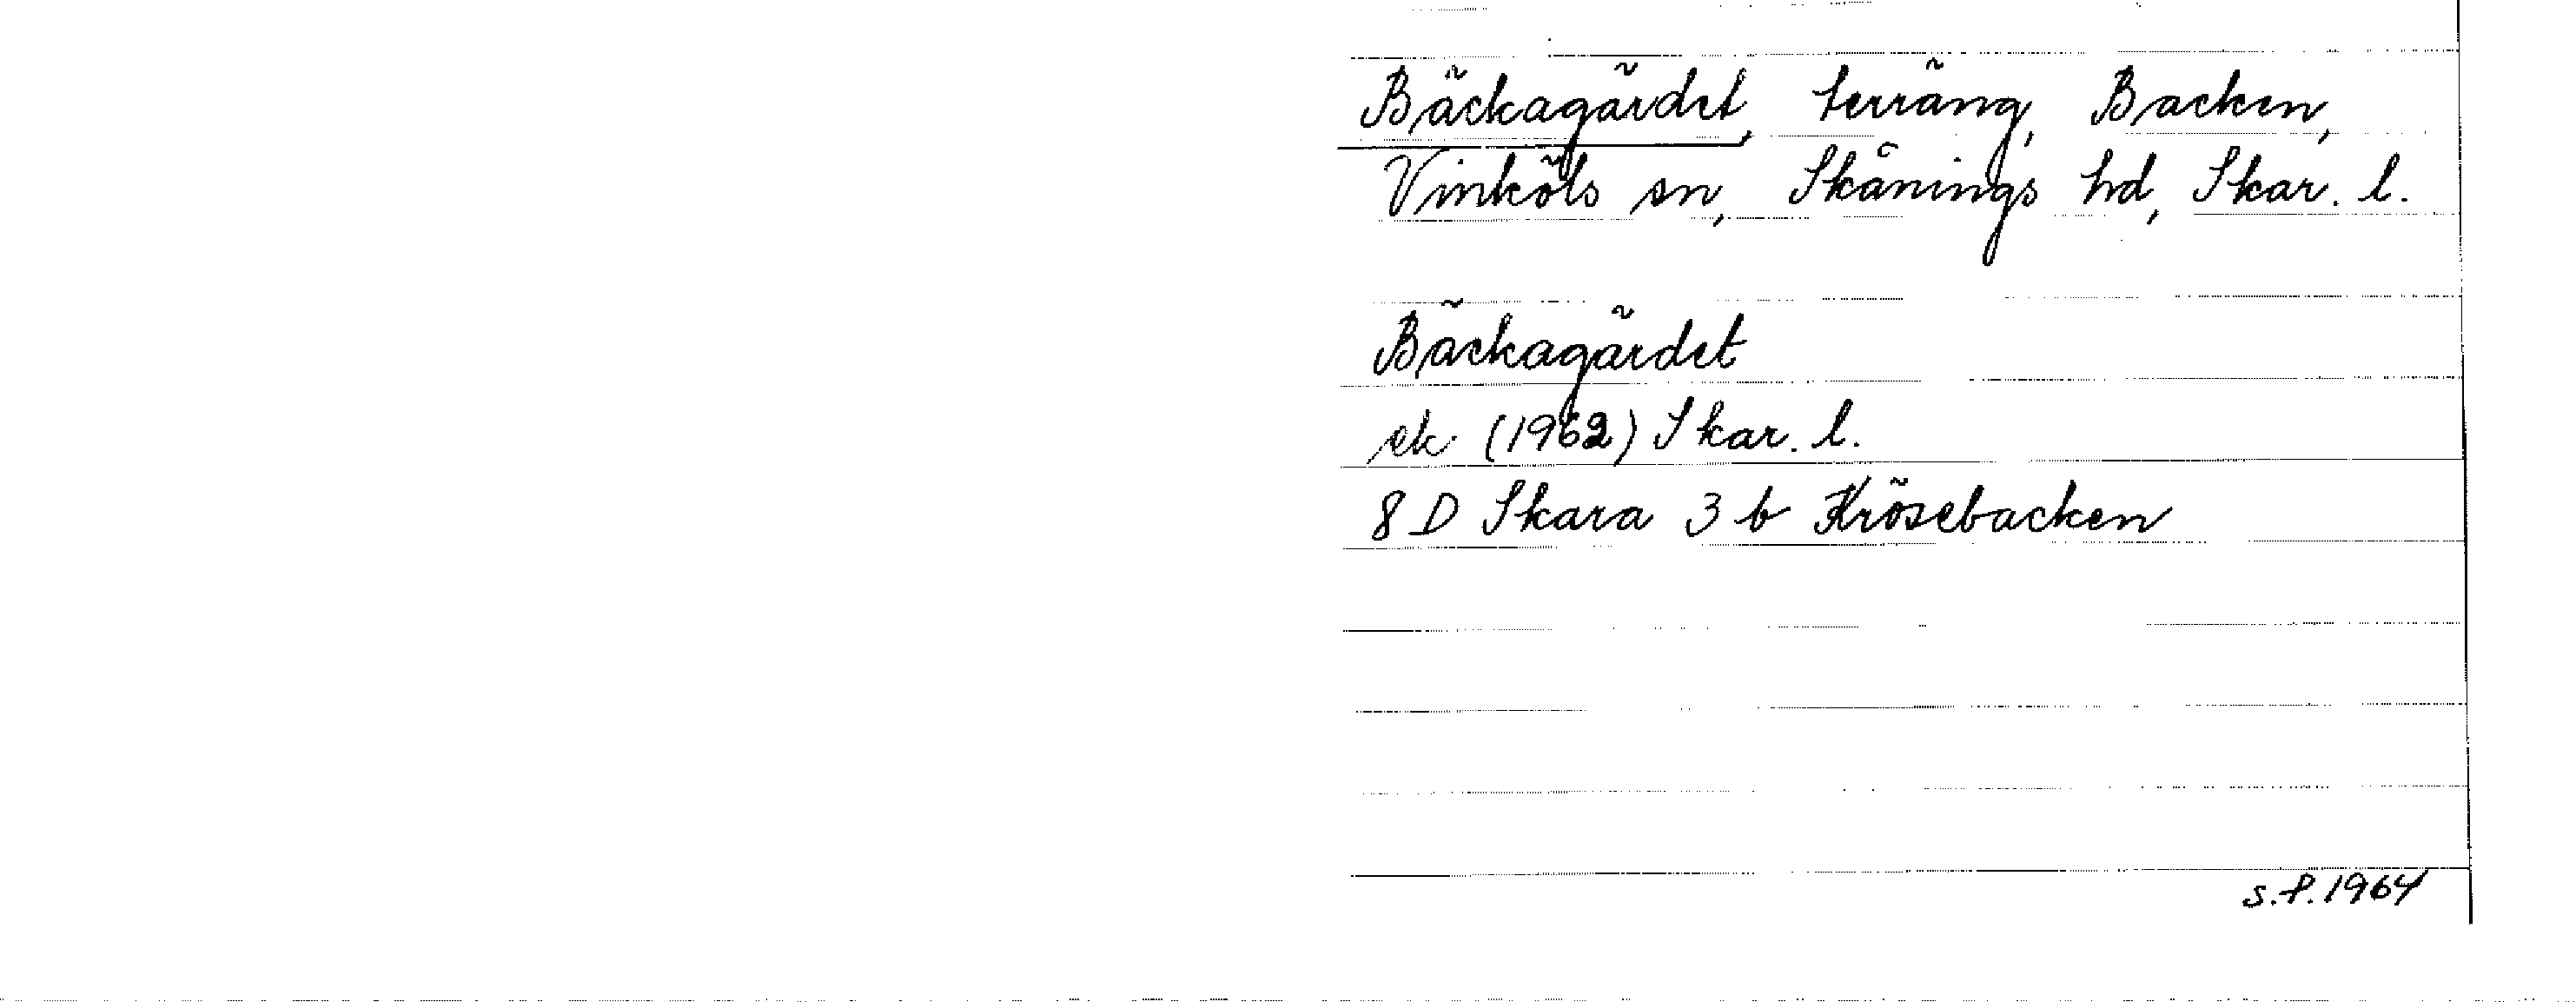 Bäckagärdet, terräng, Backen,
Vinköls sn, Skånings hd, Skar. l.
Bäckagärdet
ek (1962) Skar. l.
8 D Skara 3 b Krösebacken
S.P. 1964